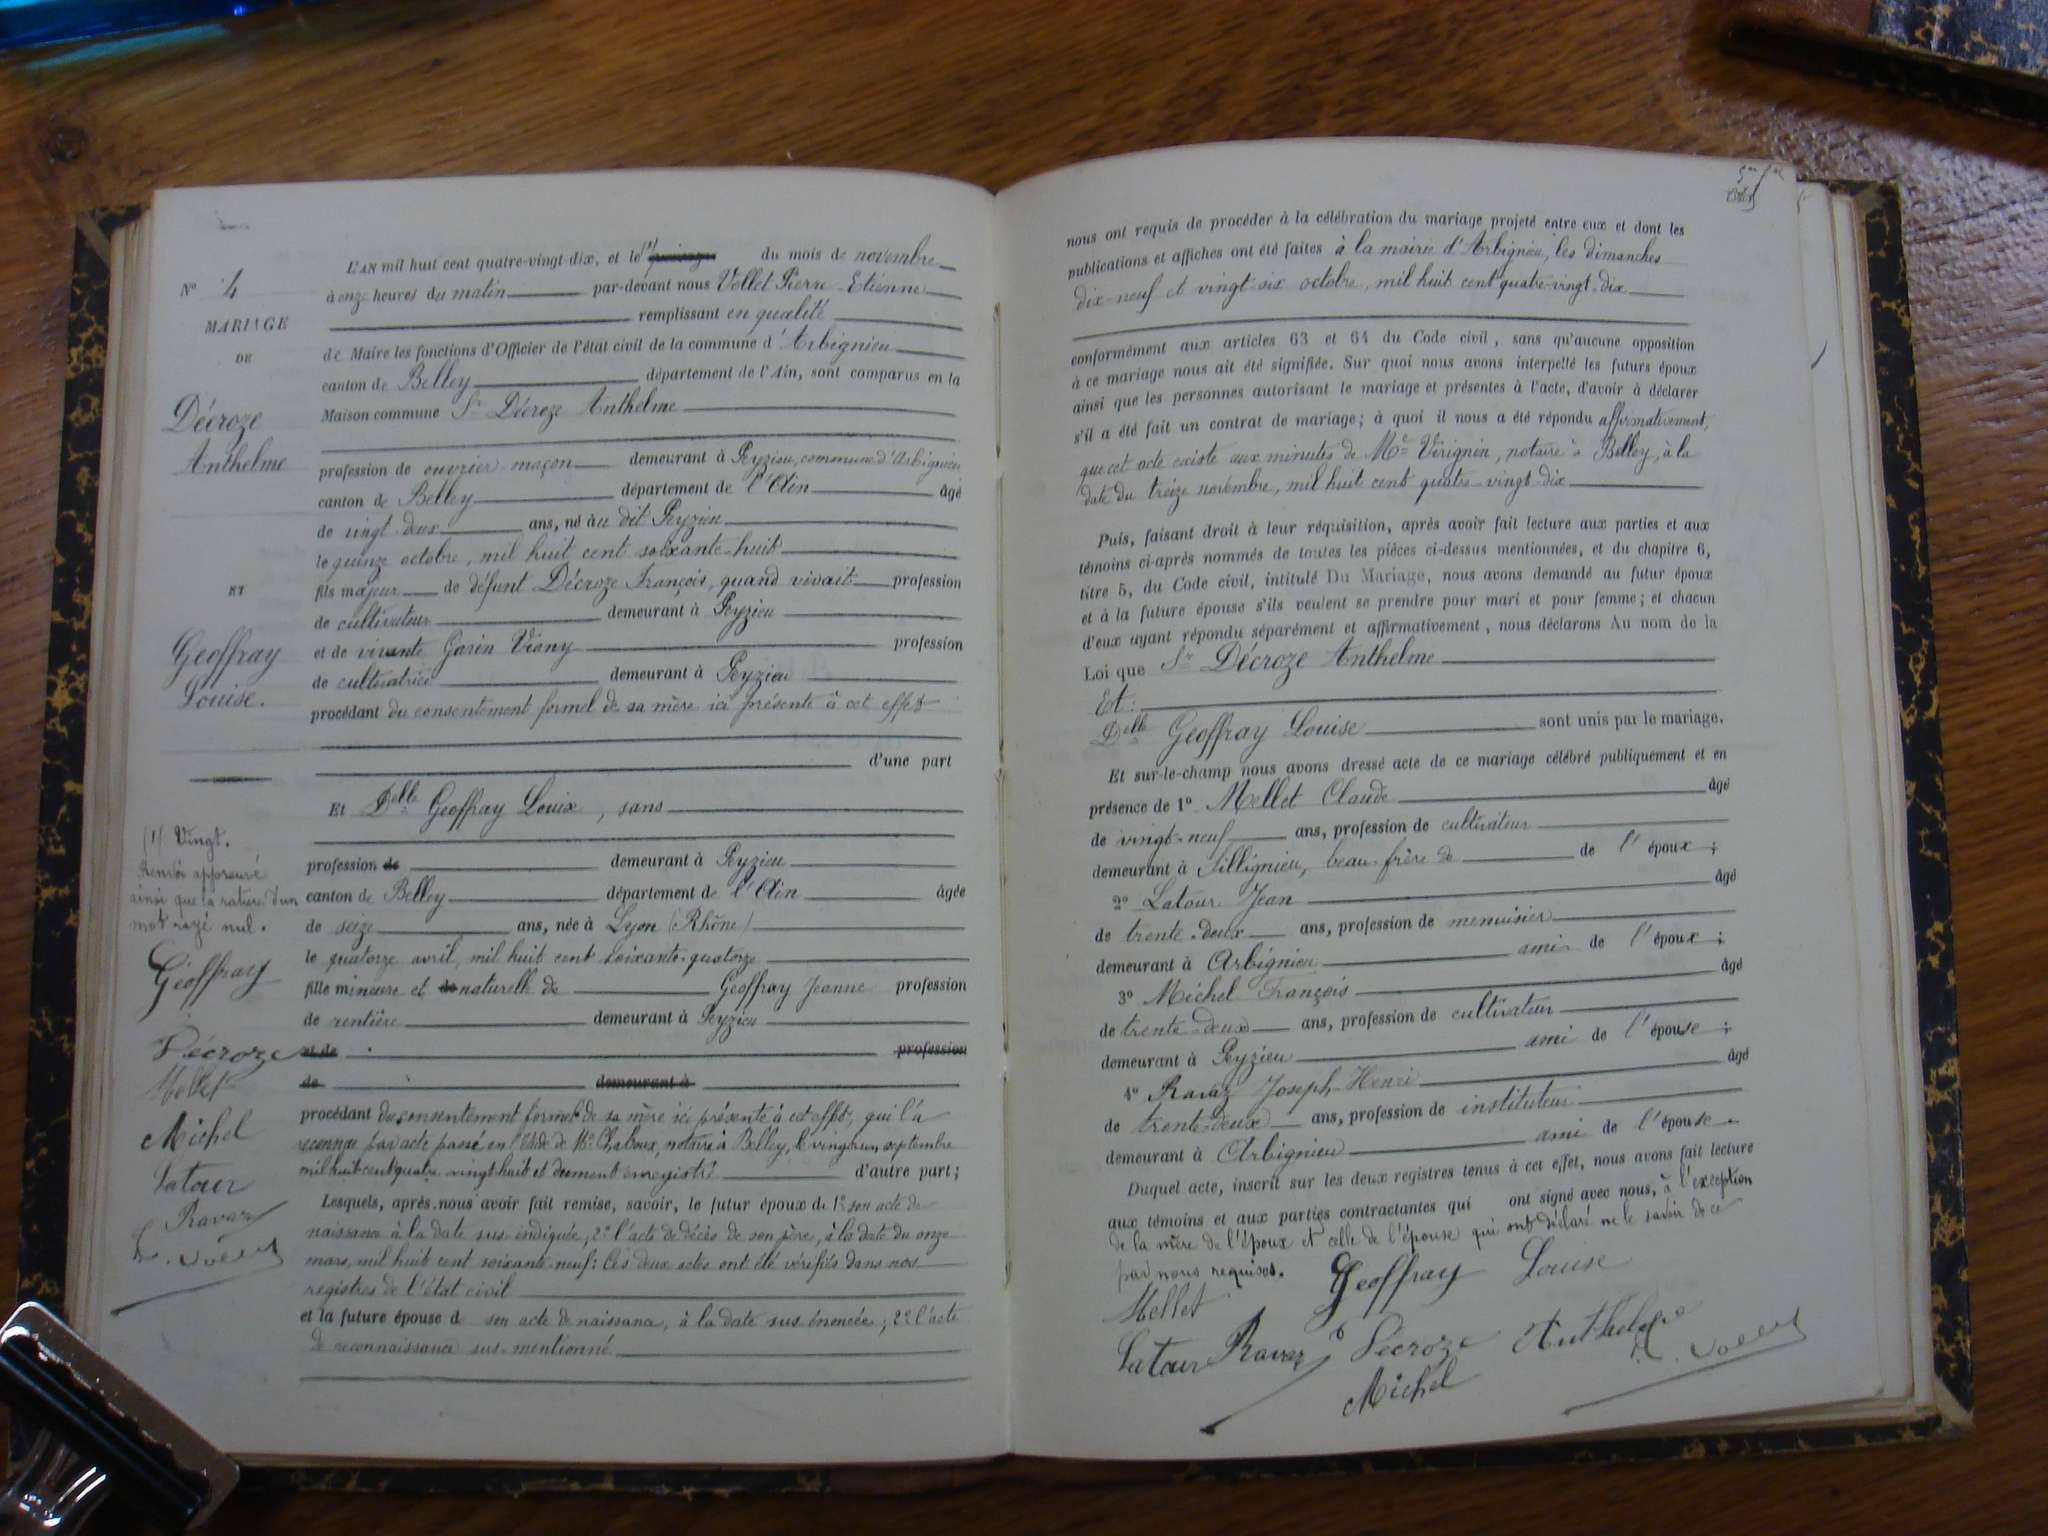 L'AN mil huit cent quatre-vingt-dix, et le (1) du mois de novembre
à onze heures du matin par-devant nous Vollet Pierre-Etienne
remplissant en qualité
de Maire les fonctions d'Officier de l'état civil de la commune d'Arbignieu
canton de Belley département de l'Ain, sont comparus en la
Maison commune Sr Décroze Anthelme
profession de ouvrier maçon demeurant à Peyzieu, commune d'Arbignieu
canton de Belley département de l'Ain âgé
de vingt-deux ans, né au dit Peyzieu
le quinze octobre, mil huit cent soixante-huit
fils majeur de défunt Décroze François, quand vivait profession
de cultivateur demeurant à Peyzieu
et de vivante Garin Viany profession
de cultivatrice demeurant à Peyzieu
procédant du consentement formel de sa mère ici présente à cet effet
d'une part
Et Delle Geoffray Louise, sans
profession de demeurant à Peyzieu
canton de Belley département de l'Ain âgée
de seize ans, née à Lyon (Rhône)
le quatorze avril, mil huit cent soixante-quatorze
fille mineure et de naturelle de Geoffray Jeanne profession
de rentière demeurant à Peyzieu
et de profession
de demeurant à
procédant du consentement formel de sa mère ici présente à cet effet, qui l'a
reconnue par acte passé en l'étude de Me Chaboux, notaire à Belley, le vingt-un septembre
mil huit cent quatre-vingt-huit et dument enregistré d'autre part;
Lesquels, après nous avoir fait remise, savoir, le futur époux de 1° son acte de
naissance à la date sus-indiquée; 2° l'acte de décès de son père, à la date du onze
mars, mil huit cent soixante-neuf: Ces deux actes ont été vérifiés dans nos
registres de l'état civil
et la future épouse d son acte de naissance, à la date sus énoncée; 2° l'acte
de reconnaissance sus-mentionné
N° 4
MARIAGE
DE
Décroze
Anthelme
ET
Geoffray
Louise.
(1) Vingt.
Renvoi approuvé
ainsi que la rature d'un
mot rayé nul.
Geoffray
Décroze
Mellet
Michel
Latour
Ravaz
nous ont requis de procéder à la célébration du mariage projeté entre eux et dont les
publications et affiches ont été faites à la mairie d'Arbignieu, les dimanches
dix-neuf et vingt-six octobre, mil huit cent quatre-vingt-dix
conformément aux articles 63 et 64 du Code civil, sans qu'aucune opposition
à ce mariage nous ait été signifiée. Sur quoi nous avons interpellé les futurs époux
ainsi que les personnes autorisant le mariage et présentes à l'acte, d'avoir à déclarer
s'il a été fait un contrat de mariage; à quoi il nous a été répondu affirmativement,
que cet acte existe aux minutes de Me Virignin, notaire à Belley, à la
date du treize novembre, mil huit cent quatre-vingt-dix
Puis, faisant droit à leur réquisition, après avoir fait lecture aux parties et aux
témoins ci-après nommés de toutes les pièces ci-dessus mentionnées, et du chapitre 6,
titre 5, du Code civil, intitulé Du Mariage, nous avons demandé au futur époux
et à la future épouse s'ils veulent se prendre pour mari et pour femme; et chacun
d'eux ayant répondu séparément et affirmativement, nous déclarons Au nom de la
Loi que Sr Décroze Anthelme
Et:
Delle Geoffray Louise sont unis par le mariage.
Et sur-le-champ nous avons dressé acte de ce mariage célébré publiquement et en
présence de 1° Mellet Claude âgé
de vingt-neuf ans, profession de cultivateur
demeurant à Sillignieu, beau-frère de de l'époux;
2° Latour Jean âgé
de trente-deux ans, profession de menuisier
demeurant à Arbignieu ami de l'époux;
3° Michel François âgé
de trente-deux ans, profession de cultivateur
demeurant à Peyzieu ami de l'épouse;
4° Ravaz Joseph-Henri âgé
de trente-deux ans, profession de instituteur
demeurant à Arbignieu ami de l'épouse.
Duquel acte, inscrit sur les deux registres tenus à cet effet, nous avons fait lecture
aux témoins et aux parties contractantes qui ont signé avec nous, à l'exception
de la mère de l'époux et celle de l'épouse qui ont déclaré ne le savoir de ce
par nous requises.
Geoffray Louise
Mellet
Latour Ravaz Décroze Anthelme
Michel